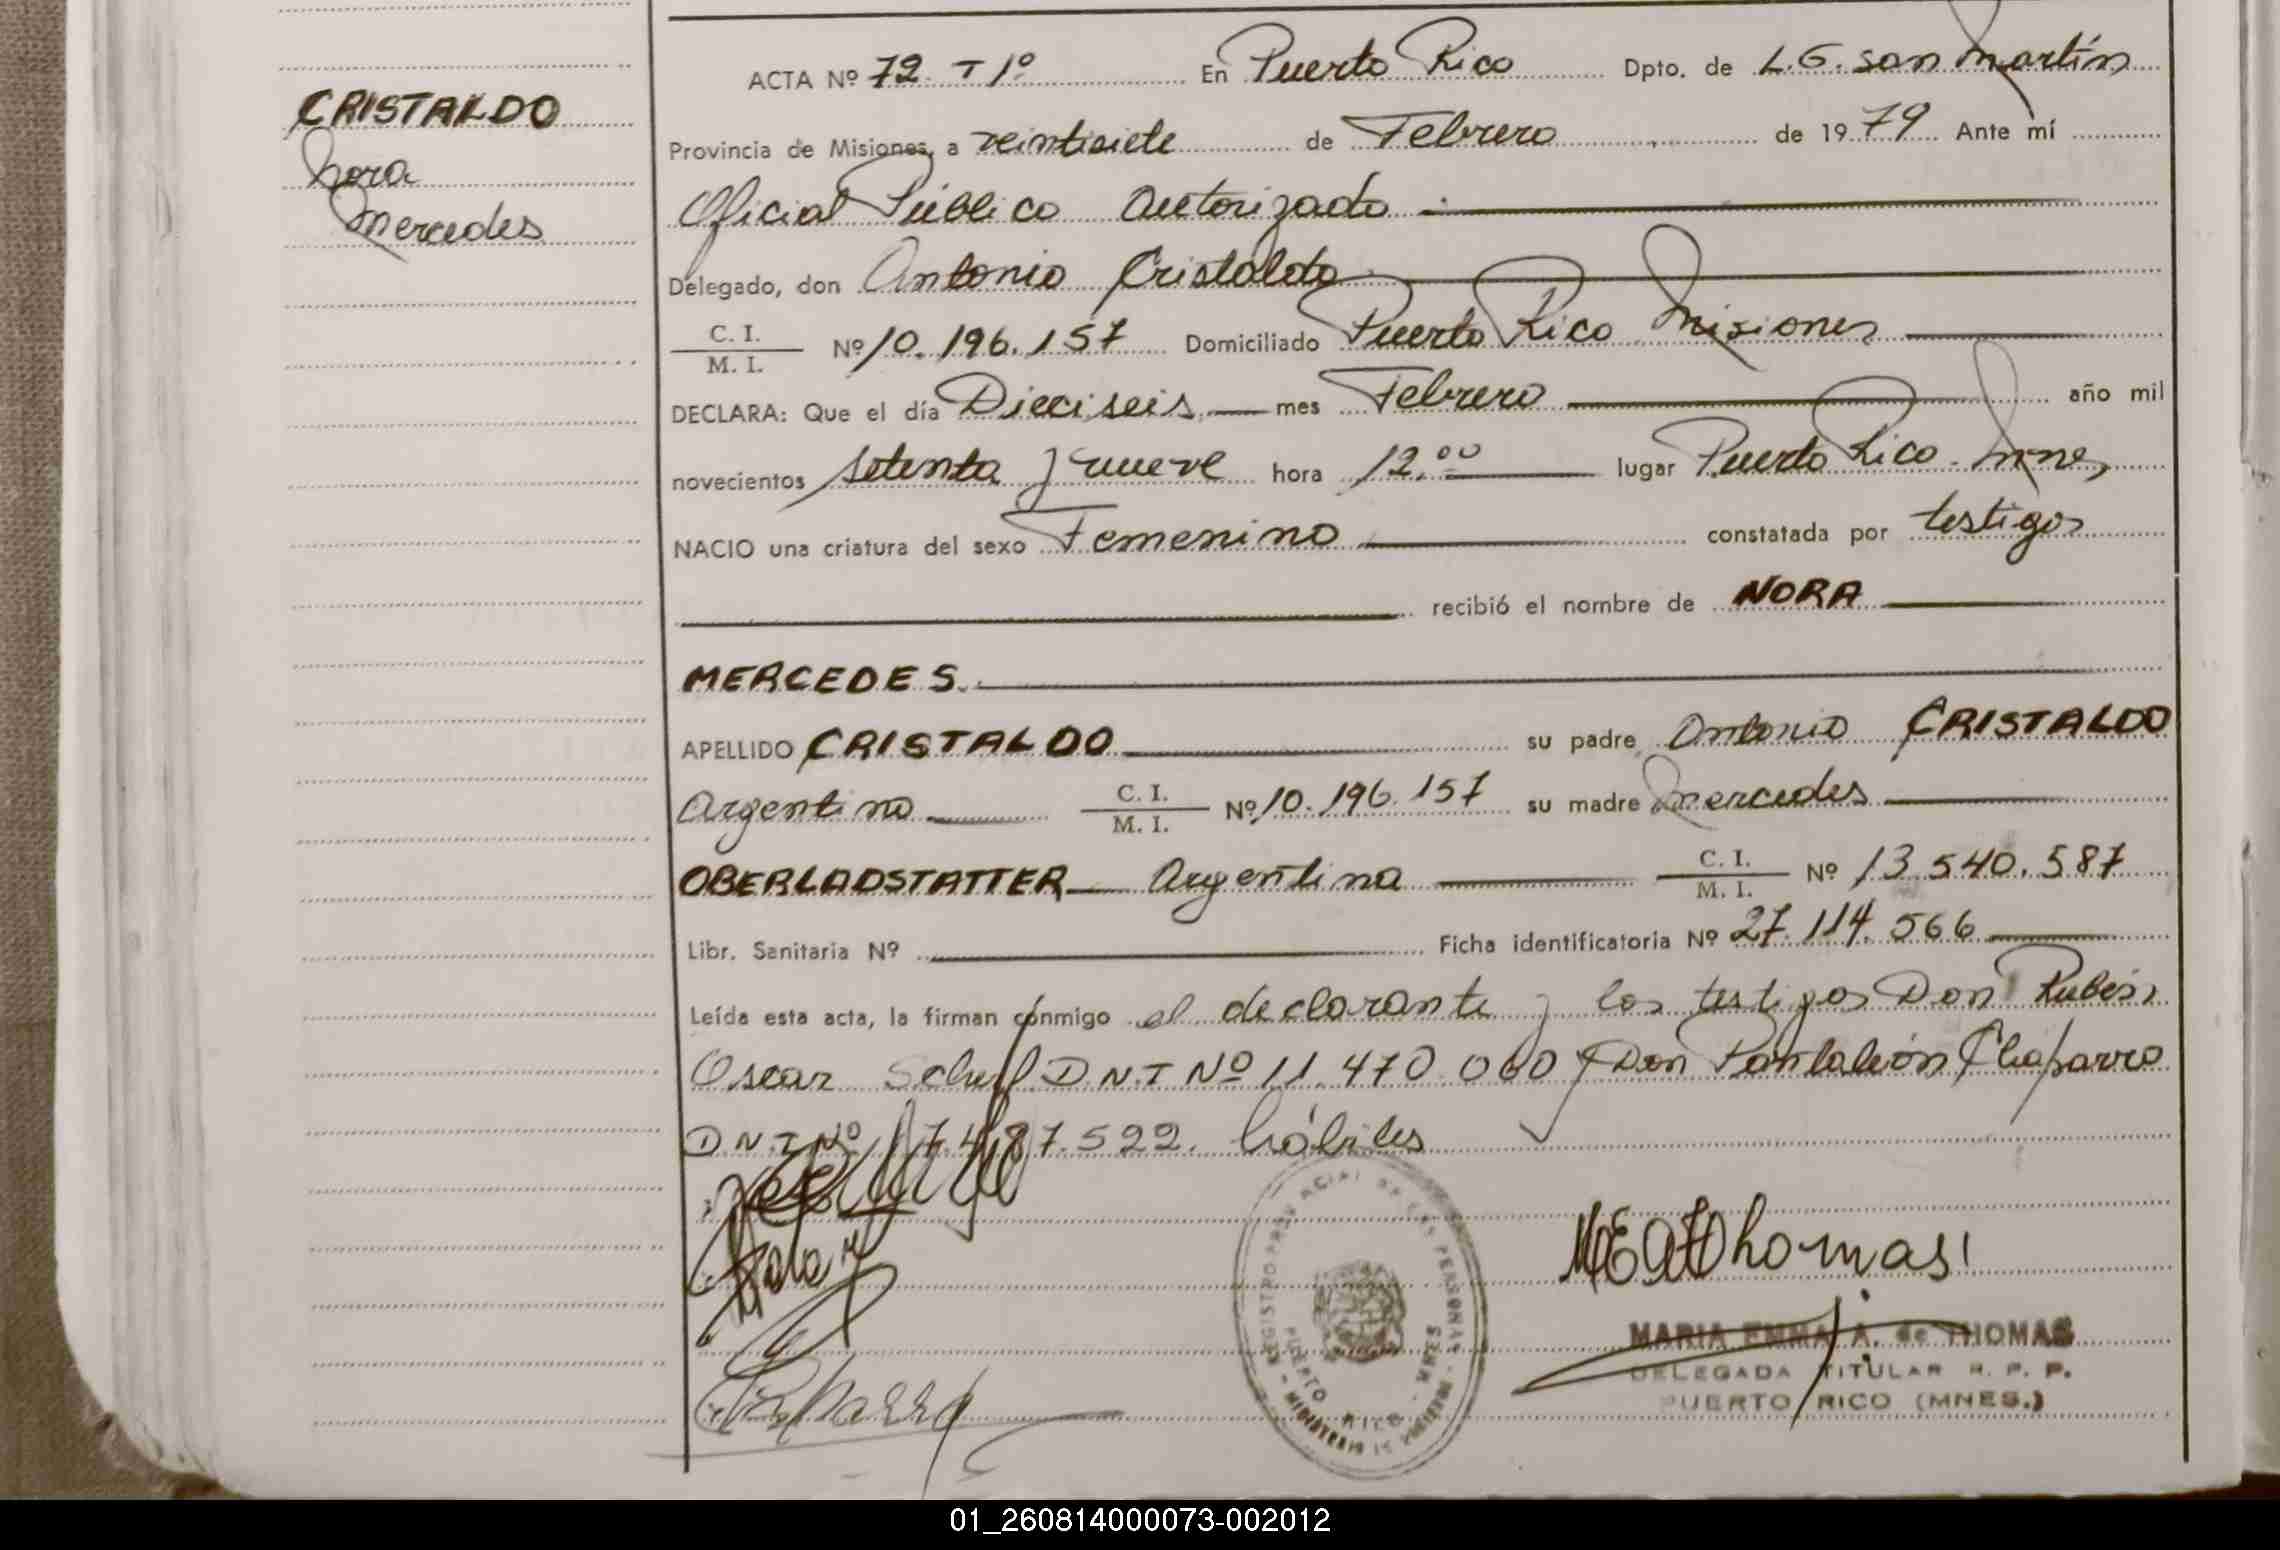 CRISTALDO
Nora
Mercedes
ACTA Nº 72 T 1º En Puerto Rico Dpto. de L.G. San Martín
Provincia de Misiones, a veintisiete de Febrero de 1979 Ante mí
Oficial Público Autorizado
Delegado, don Antonio Cristaldo
C. I.
M. I.
Nº 10.196.157 Domiciliado Puerto Rico Misiones
DECLARA: Que el día Dieciseis mes Febrero año mil
novecientos setenta y nueve hora 12.00 lugar Puerto Rico. Mnes,
NACIO una criatura del sexo Femenino constatada por testigos
recibió el nombre de NORA
MERCEDES.
APELLIDO CRISTALDO su padre Antonio CRISTALDO
Argentino C. I. M. I. Nº 10.196.157 su madre Mercedes
OBERLADSTATTER Argentina C. I. M. I. Nº 13.540.587
Libr. Sanitaria Nº Ficha identificatoria Nº 27.114.566
Leída esta acta, la firman conmigo el declarante y los testigos Don Rubén
Oscar D.N.I Nº 11.470.060 y Don Pantaleón Chaparro
D.N.I Nº 17.487.522. hábiles
REGISTRO PROVINCIAL DE LAS PERSONAS
PUERTO RICO - MNES
MEAdThomas
MARIA EMMA A. de THOMAS
DELEGADA TITULAR R. P. P.
PUERTO RICO (MNES.)
01_260814000073-002012